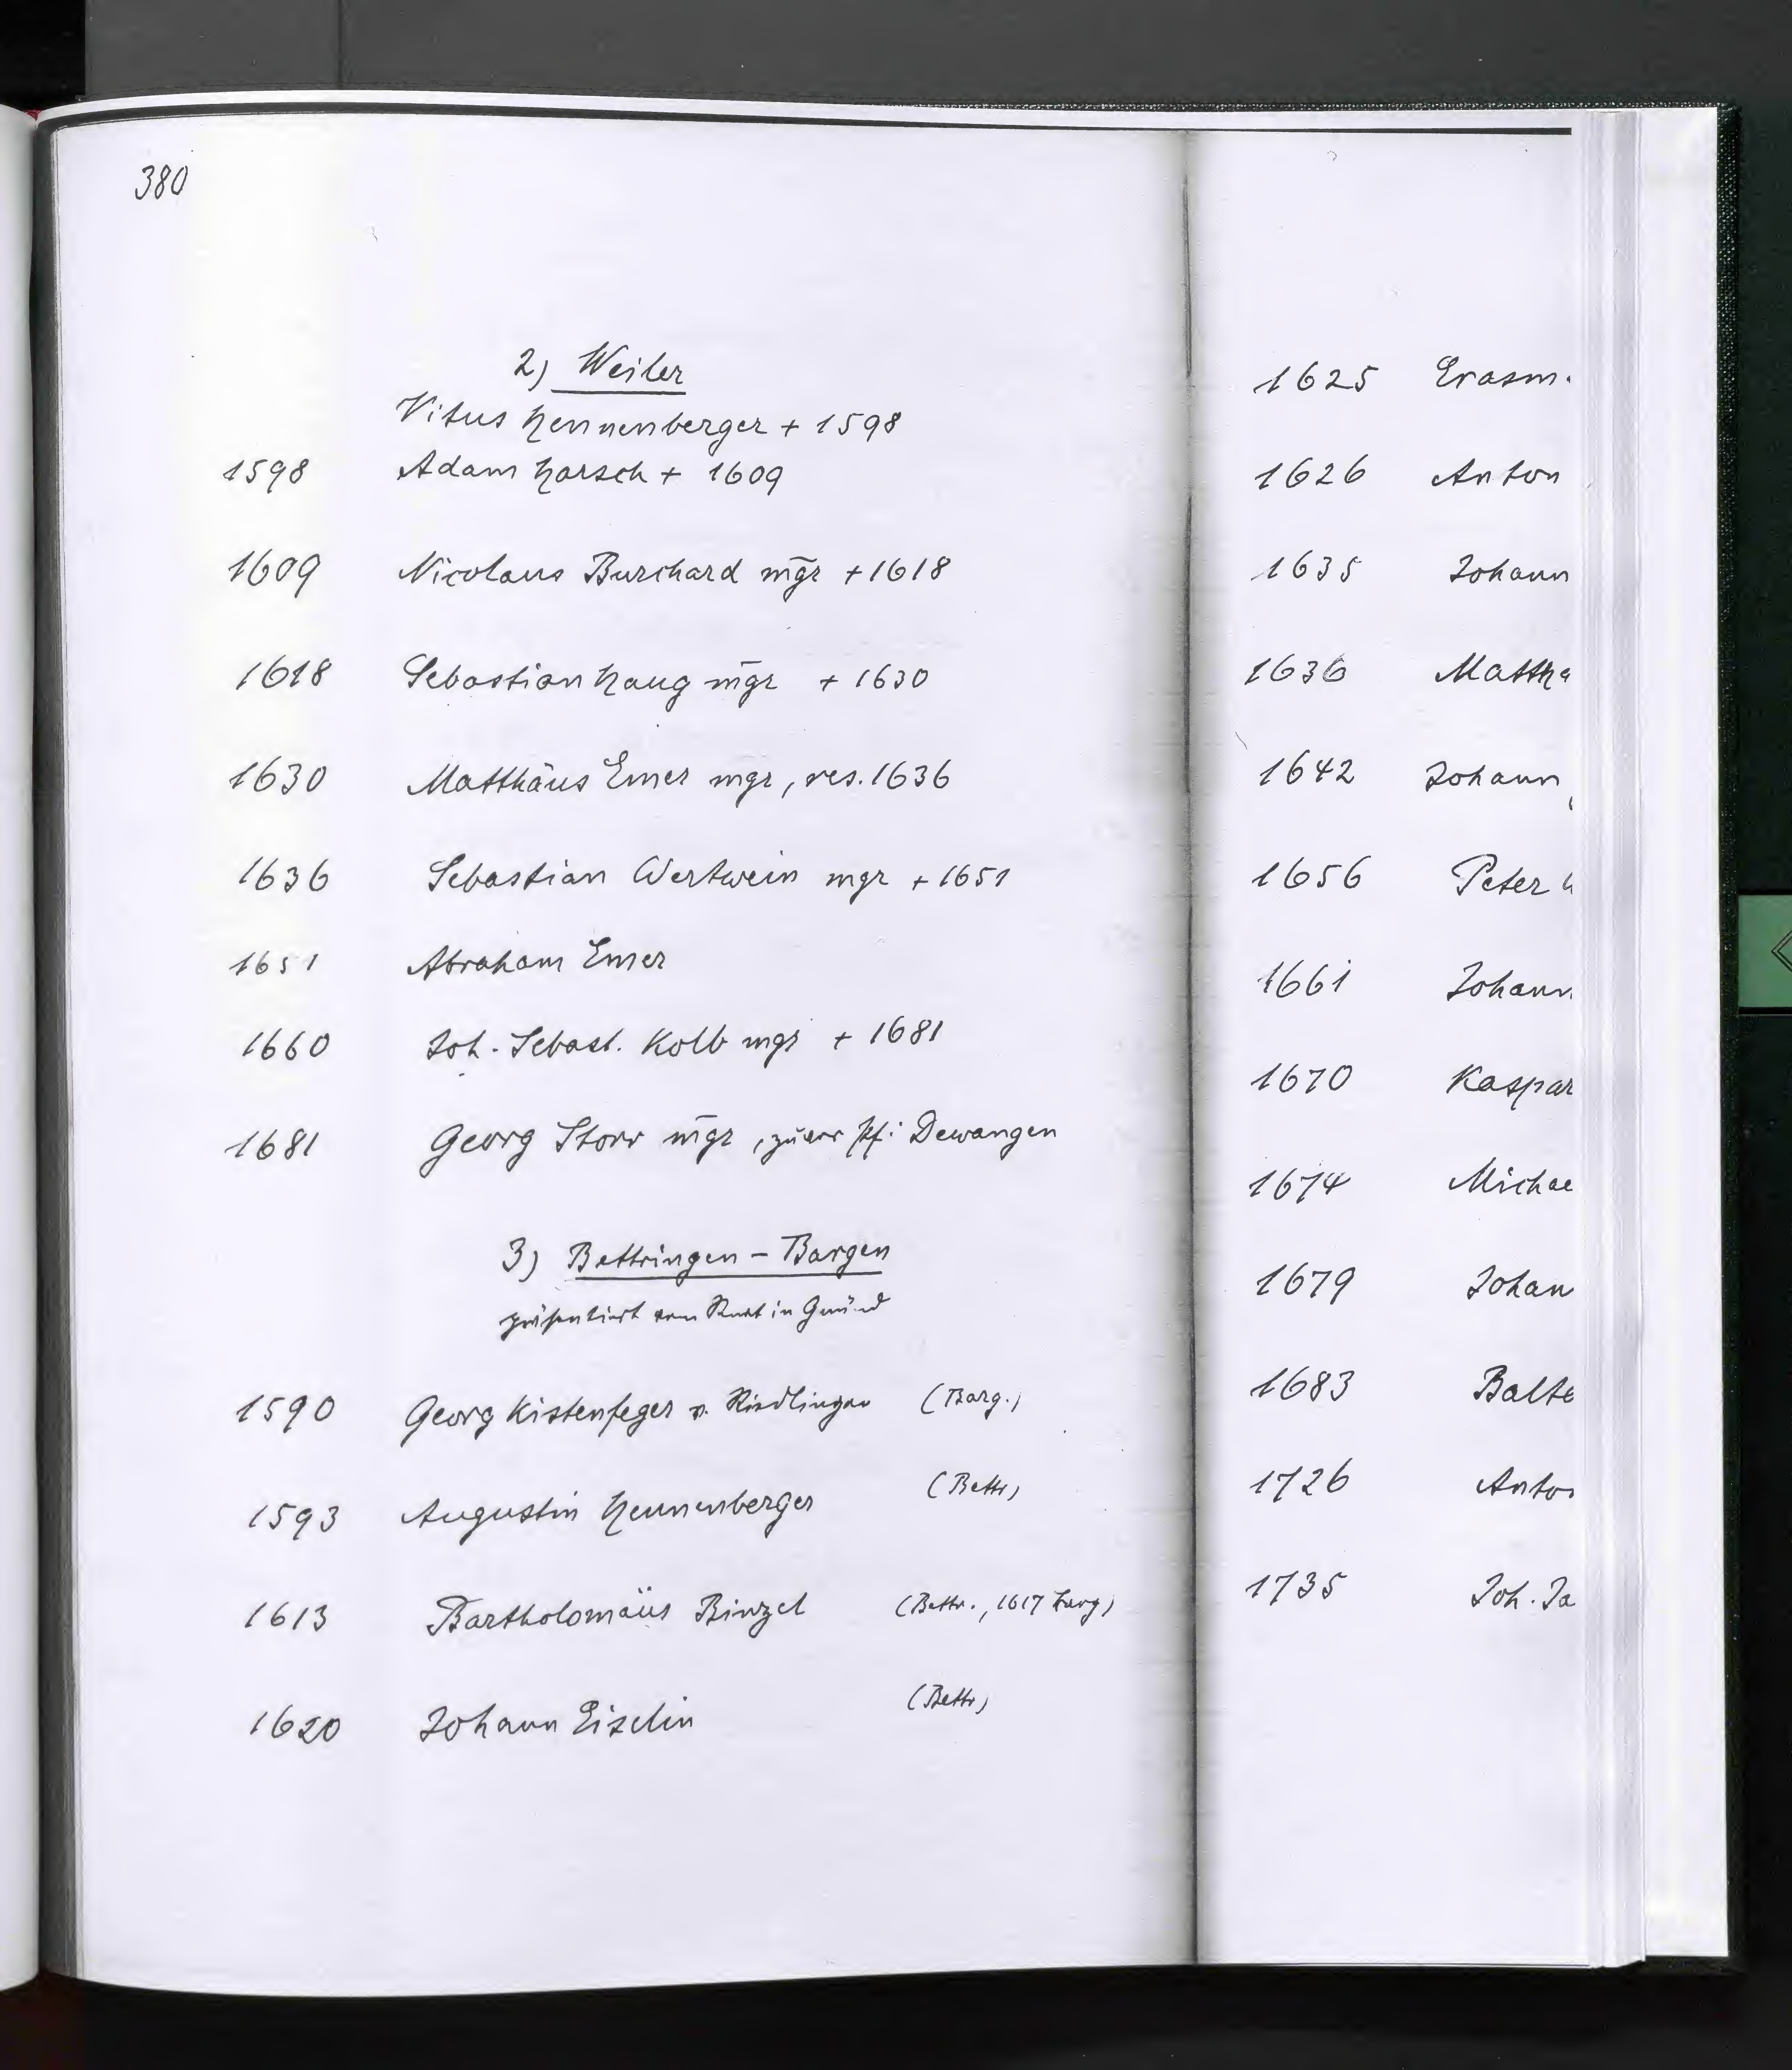 380
2) Weiler
Vitus Hennenberger + 1598
1598 Adam Harsch + 1609
1609 Nicolaus Burchard m̄gr +1618
1618 Sebastian Haug m̄gr + 1630
1630 Matthäus Emer mgr, res. 1636
1636 Sebastian Wertwein mgr + 1651
1651 Abraham Emer
1660 Joh. Sebast. Kolb mgr + 1681
1681 Georg Storr m̄gr, zuvor Pf: Dewangen
3) Bettringen - Bargen
präsentiert vom Rat in Gmünd
1590 Georg Kistenfeger v. Riedlingen (Barg.)
1593 Augustin Hennenberger (Bettr)
1613 Bartholomäus Binzel (Bettr., 1617 Barg)
1620 Johann Eiselin (Bettr)
1625 Erasm.
1626 Anton
1635 Johann
1636 Mattha
1642 Johann
1656 Peter
1661 Johann
1670 Kaspar
1674 Michae
1679 Johan
1683 Balte
1726 Anton
1735 Joh. Ja